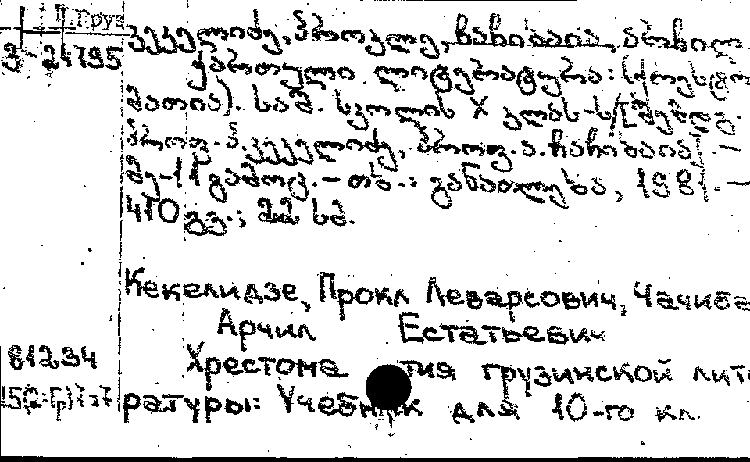 კეკელიძე, პროკლე, ჩაჩიბაია, არჩილ
3-24795
ქართული ლიტერატურა: (ქრესტო
მათია). საშ. სკოლის X კლას-ს/[შეადგ.
პროფ. პ. კეკელიძე, პროფ. ა. ჩაჩიბაია]. —
მე-11 გამოც. — თბ.: განათლება, 1981. —
410 გვ.; 22 სმ.
Кекелидзе, Прокл Леварсович, Чачиба
Арчил Естатьевич
81234 Хрестоматия грузинской лите
ратуры: Учебник для 10-го кл.